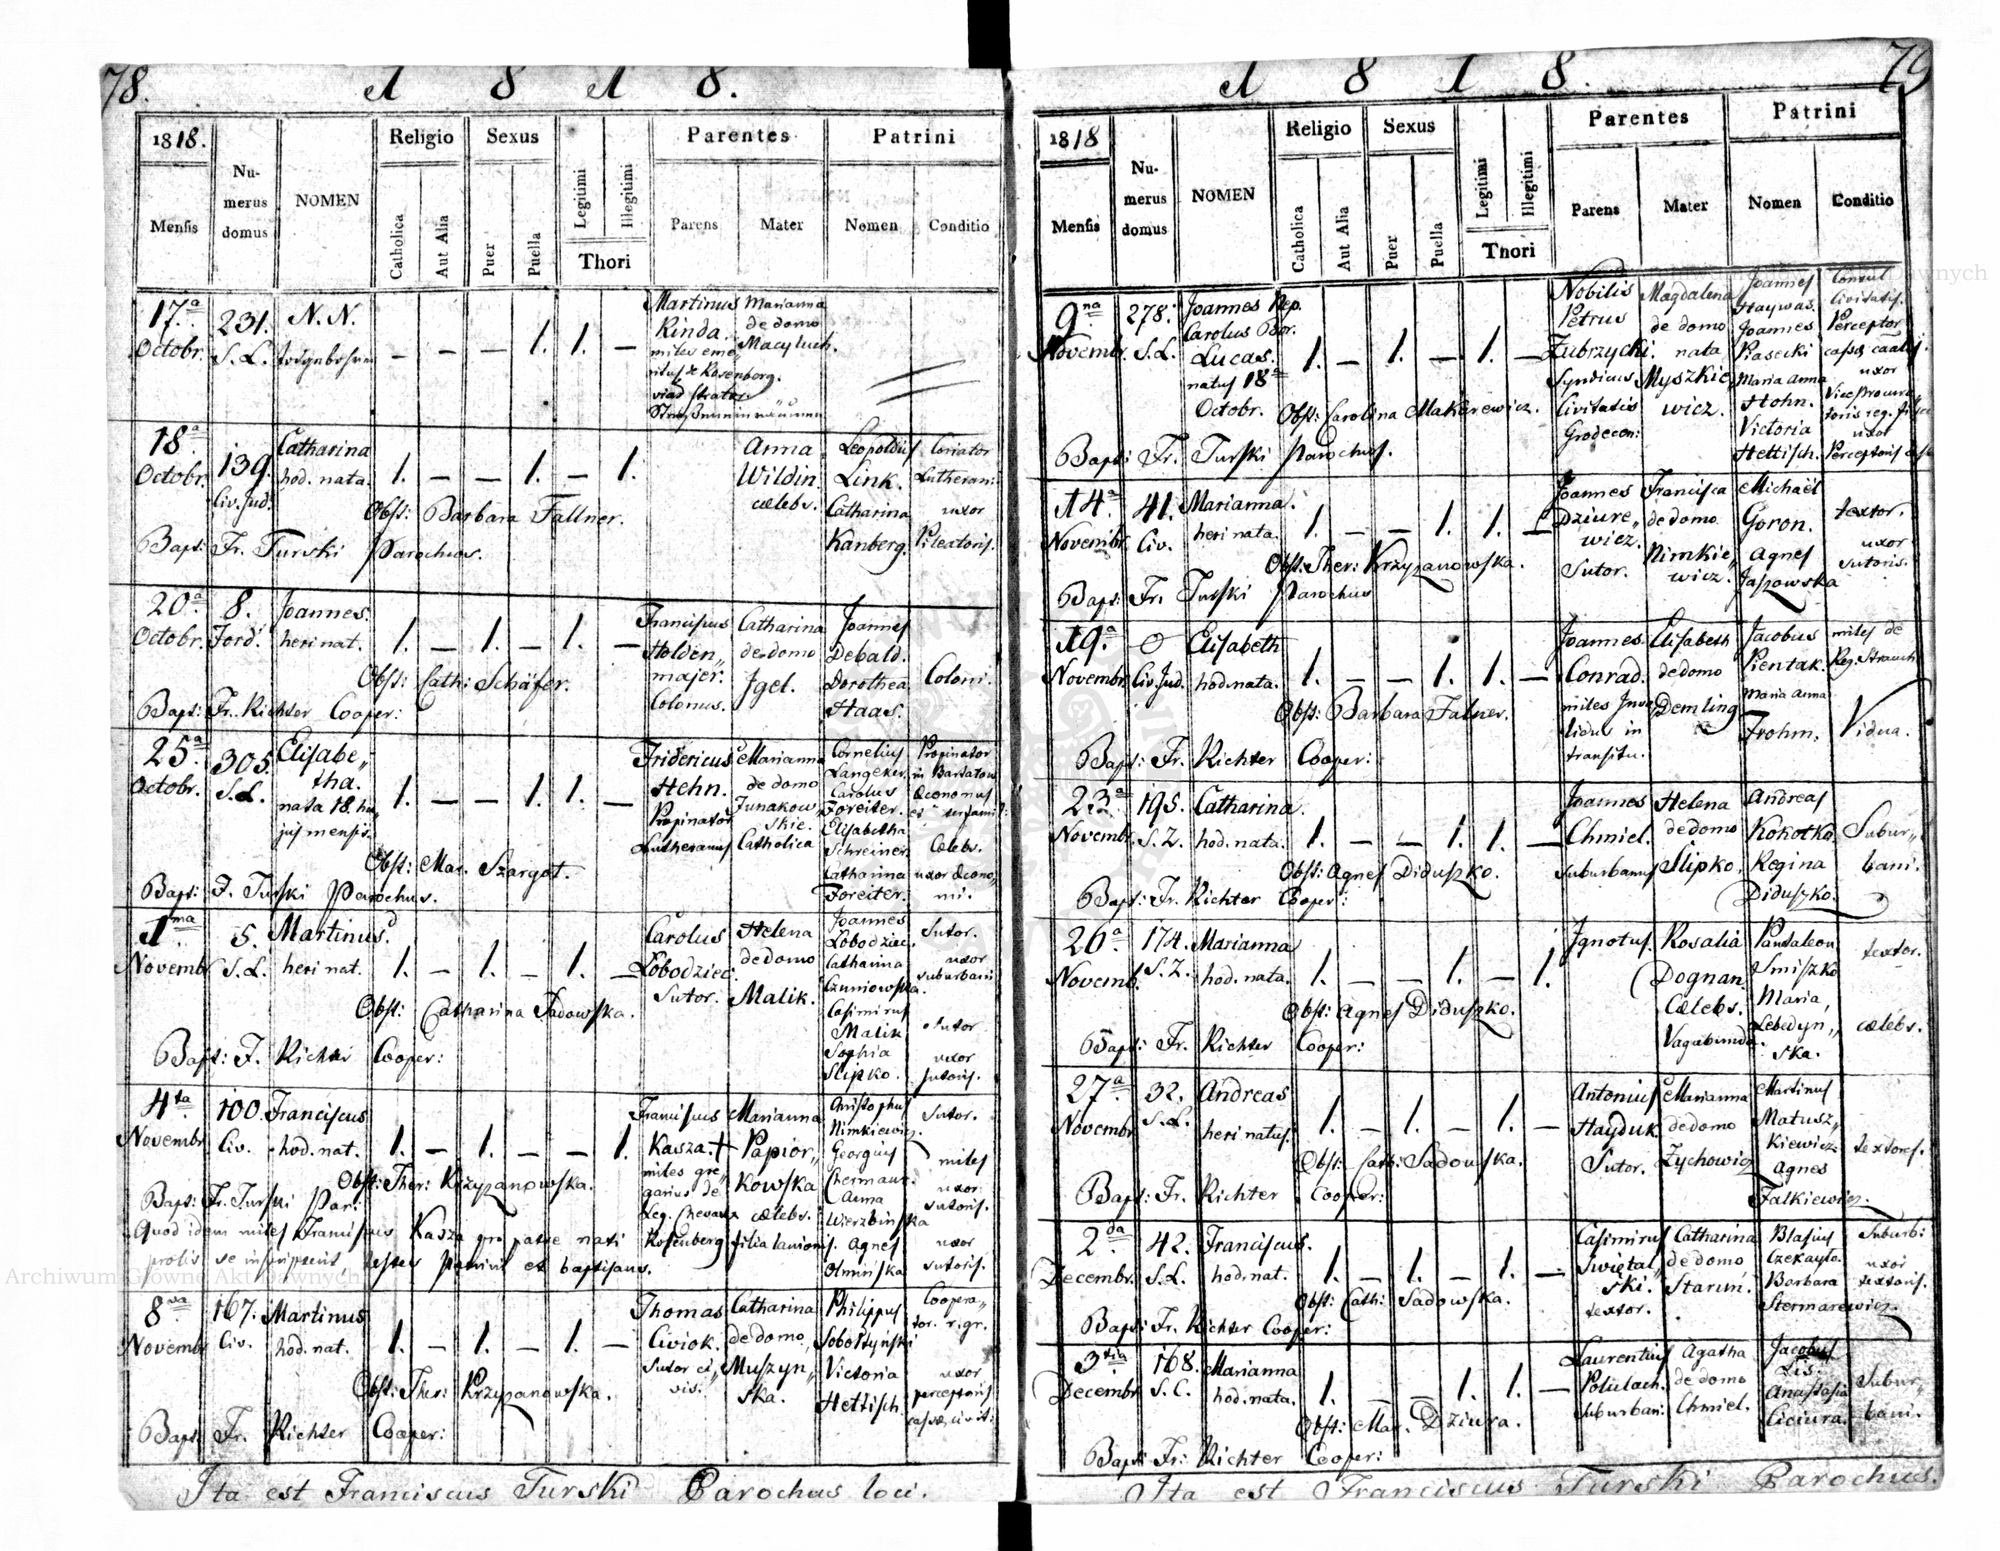 78.
1 8 1 8.
1818.
Numerus domus
NOMEN
Religio
Sexus
Legitimi
Illegitimi
Thori
Parentes
Patrini
Mensis
Catholica
Aut Alia
Puer
Puella
Parens
Mater
Nomen
Conditio
17.a 231. N. N. Martinus Marianna
Octobr. S. L. Kinda. de domo
— — — 1. 1. —
18a Catharina Anna Leopoldus
Octobr. 139. hod. nata. 1. — — 1. — 1. Wildin Link. Lutheran:
Civ. Jud. cælebs. Catharina uxor
Obst: Barbara Fallner. Kanberg.
Bapt: Fr. Turski Parochus.
20a 8. Joannes. Franciscus Catharina Joannes
Octobr. Ford. heri nat. 1. — 1. — 1. — Holden„ de domo Debald.
majer. Igel. Dorothea Coloni.
Obst: Cath: Schäfer. Colonus. Haas.
Bapt: Fr. Richter Cooper:
25a 305. Elisabe„ Fridericus Marianna Cornelius Propinator
Octobr. S. L. tha. 1. — — 1. 1. — Hehn. de domo Langeker.
nata 18. hu„ Propinator Junakow Carolus Oeconomus
jus mensis. skie. Foreiter.
Lutheranus Catholica Elisabetha
Schreiner. Cælebs.
Obst: Mar. Szargot. Catharina uxor Œcono„
Bapt: F. Turski Parochus. Foreiter. mi.
1ma 5. Martinus. Carolus Helena Joannes Sutor.
Novembr S. L. heri nat. 1. — 1. — 1. — Lobodziec. de domo Lobodziec. uxor
Sutor. Malik. Catharina suburbani
Czuniowska.
Obst: Catharina Sadowska. Casimirus
Malik Sutor
Bapt: F. Richter Cooper: Sophia uxor
Slipko. sutoris.
4ta 100. Franciscus Franciscus Marianna Christophus Sutor.
Novembr Civ. hod. nat. 1. — 1. — — 1. Kasza. + Papior„ Nimkiewicz.
miles gre„ kowska Georgius miles
Obst: Ther: Krzyzanowska. garius de cælebs. Anna uxor
Bapt: Fr. Turski Par. Wierzbinska sutoris.
Quod idem miles Franciscus Kasza pro patre nati Rosenberg filia lanionis. Agnes uxor
prolis se inscripserit, testes Patrini et baptisans. Olminska sutoris.
8va 167. Martinus Thomas Catharina Philippus Coopera„
Novembr Civ. hod. nat. 1. — 1. — 1. — Civiok. de domo Sobotzynski tor. r. gr.
Sutor ci„ Muszyn„ Victoria uxor
Obst: Ther: Krzyzanowska. vis. ska. Hettisch. perceptoris
cassæ civit:
Bapt: Fr. Richter Cooper:
Ita est Franciscus Turski Parochus loci.
79
1 8 1 8.
1818
Numerus domus
NOMEN
Religio
Sexus
Legitimi
Illegitimi
Thori
Parentes
Patrini
Mensis
Catholica
Aut Alia
Puer
Puella
Parens
Mater
Nomen
Conditio
9na 278. Joannes Nep. Nobilis Magdalena Joannes Consul
Novembr. S. L. Carolus Bor. Petrus de domo Haywas. Civitatis.
Lucas. 1. — 1. — 1. — Zubrzycki. nata Joannes Perceptor
natus 18a Syndicus Myszkie„ Piasecki
Octobr. Civitatis wicz. Maria Anna uxor
Obst: Carolina Makarewicz. Grodecen: Hohn.
Bapt: Fr. Turski Parochus. Victoria uxor
Hettisch. Perceptoris
14a 41. Marianna. Joannes Francisca Michaël
Novembr. Civ. heri nata. 1. — — 1. 1. — Dziure„ de domo Goron. textor.
wicz. Nimkie„ Agnes uxor
Obst: Ther: Krzyzanowska. Sutor. wicz. Jaszowska sutoris.
Bapt: Fr. Turski Parochus
19a 0 Elisabeth Joannes Elisabeth Jacobus miles de
Novembr. Civ. Jud. hod. nata. 1. — — 1. 1. — Conrad. de domo Pientak. Reg: Strauch
miles Inva„ Demling Maria Anna
Obst: Barbara Falner. lidus in Frohm. Vidua.
transitu.
Bapt: Fr. Richter Cooper:
23a 195. Catharina. Joannes Helena Andreas
Novembr. S. L. hod. nata. 1. — — 1. 1. — Chmiel. de domo Kokotka. Subur„
Obst: Agnes Diduszko. suburbanus Slipko. Regina bani.
Bapt: Fr. Richter Cooper: Diduszko.
26a 174. Marianna Ignotus. Rosalia Pantaleon textor.
Novemb. S. L. hod. nata. 1. — — 1. — 1. Dognan Smiszko
Obst: Agnes Diduszko. Cælebs. Maria
Vagabunda. Lebedyn„ cælebs.
Bapt: Fr. Richter Cooper: ska.
27a 32. Andreas Antonius Marianna Martinus
Novembr S. L. heri natus. 1. — 1. — 1. — Hayduk. de domo Matusz„
Sutor. Zychowicz kiewicz textores.
Obst: Cath: Sadowska. Agnes
Bapt: Fr. Richter Cooper: Falkiewicz.
2da 42. Franciscus. Casimirus Catharina Blasius Suburb:
Decembr. S. L. hod. nat. 1. — 1. — 1. — Swiętal„ de domo Czekaylo. uxor
ski. Starun. Barbara textoris.
Obst: Cath: Sadowska. textor. Stermarewicz.
Bapt: Fr. Richter Cooper:
3tia 168. Marianna Laurentius Agatha Jacobus
Decembr S. L. hod. nata. 1. — — 1. 1. — Polulach. de domo Lis. Subur„
suburban: Chmiel. Anastasia bani.
Obst: Mar. Dziura. Ciciura.
Bapt: Fr: Richter Cooper:
Ita est Franciscus Turski Parochus.
Archiwum Główne Akt Dawnych